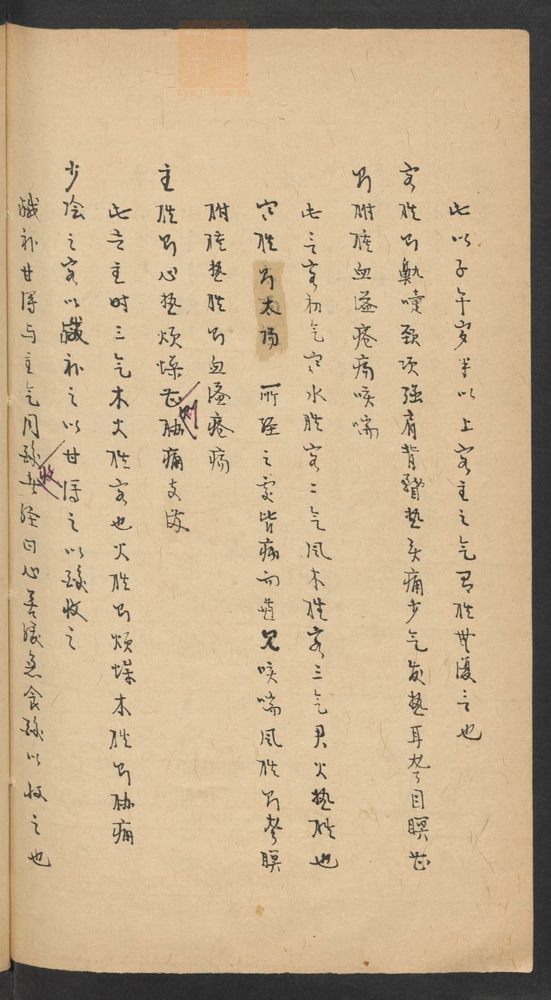 此以子午岁半以上客主之气有胜无复言也
客胜则鼽嚏颈项强肩背瞀热头痛少气发热耳聋目瞑甚
则胕肿血溢疮疡咳喘
此言客初气寒水胜客二气风木胜客三气君火热胜也
寒胜则太阳所经之处皆病而兼见咳喘风胜则聋瞑
胕肿热胜则血溢疮疡
主胜则心热烦躁甚则胁痛支满
此言主时三气木火胜客也火胜则烦燥木胜则胁痛
少阴之客以咸补之以甘泻之以酸收之
咸补甘泻与主气同酸收经曰心苦缓急食酸以收之也